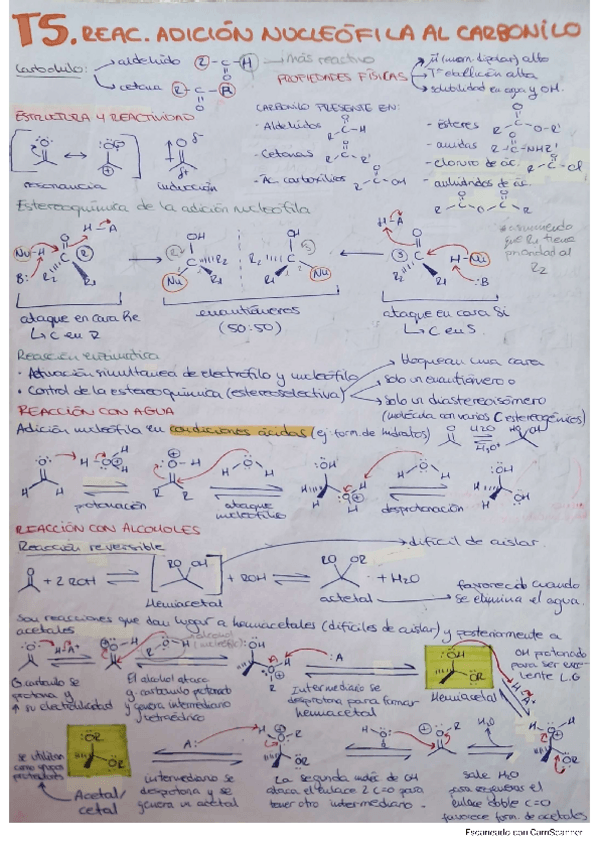 T5. REAC. ADICIÓN NUCLEÓFILA AL CARBONILO
Carbonilo:
aldehído R-C-H
O
más reactivo
cetona R-C-R
O
PROPIEDADES FÍSICAS
μ (mom. dipolar) alto
Tª ebullición alta
solubilidad en agua y OH.
ESTRUCTURA Y REACTIVIDAD
resonancia
inducción
CARBONILO PRESENTE EN:
- Aldehídos
- Cetonas
- Ác. carboxílicos
- ésteres
- amidas
- cloruro de ác.
- anhídridos de ác.
Estereoquímica de la adición nucleófila
ataque en cara Re
↳ C en R
enantiómeros
(50:50)
ataque en cara Si
↳ C en S.
* asumiendo
que R1 tiene
prioridad al
R2
Reacción enzimática
• Actuación simultánea de electrófilo y nucleófilo
• Control de la estereoquímica (estereoselectiva)
bloquean una cara
solo un enantiómero o
solo un diastereoisómero
(molécula con varios C estereogénicos)
REACCIÓN CON AGUA
Adición nucleófila en condiciones ácidas (ej: form. de hidratos)
H2O
H3O+
protonación
ataque
nucleófilo
desprotonación
REACCIÓN CON ALCOHOLES
Reacción reversible
difícil de aislar.
+ 2 ROH
Hemiacetal
+ ROH
acetal
+ H2O
favorecido cuando
se elimina el agua.
son reacciones que dan lugar a hemiacetales (difíciles de aislar) y posteriormente a
acetales
alcohol
OH protonado
para ser exce-
lente L.G
G. carbonilo se
protona y
↑ su electrofilidad
El alcohol ataca
g. carbonilo protonado
y genera intermediario
tetraédrico
Intermediario se
desprotona para formar
hemiacetal
Hemiacetal
se utilizan
como grupos
protectores
Acetal/
cetal
intermediario se
desprotona y se
genera un acetal
La segunda molec de OH
ataca el enlace 2 C=O para
tener otro intermediario.
sale H2O
para regenerar el
enlace doble C=O
favorece form. de acetales
Escaneado con CamScanner